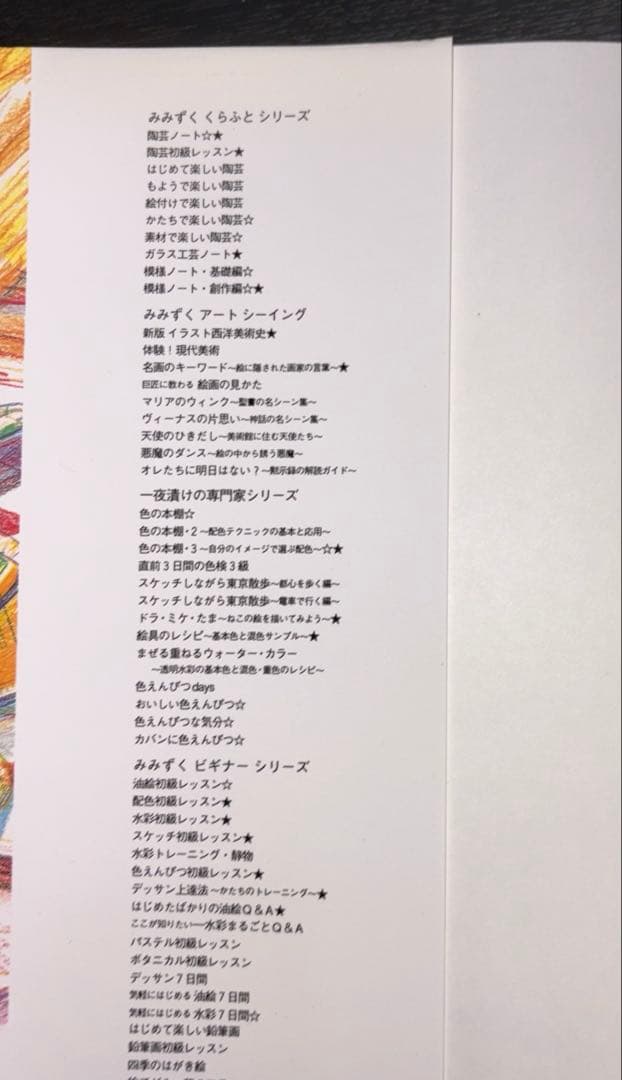 みみずく くらふと シリーズ
陶芸ノート☆★
陶芸初級レッスン★
はじめて楽しい陶芸
もようで楽しい陶芸
絵付けで楽しい陶芸
かたちで楽しい陶芸☆
素材で楽しい陶芸☆
ガラス工芸ノート★
模様ノート・基礎編☆
模様ノート・創作編☆★
みみずく アート シーイング
新版 イラスト西洋美術史★
体験！現代美術
名画のキーワード～絵に隠された画家の言葉～★
巨匠に教わる 絵画の見かた
マリアのウィンク～聖書の名シーン集～
ヴィーナスの片思い～神話の名シーン集～
天使のひきだし～美術館に住む天使たち～
悪魔のダンス～絵の中から誘う悪魔～
オレたちに明日はない？～黙示録の解読ガイド～
一夜漬けの専門家シリーズ
色の本棚☆
色の本棚・2～配色テクニックの基本と応用～
色の本棚・3～自分のイメージで選ぶ配色～☆★
直前3日間の色検3級
スケッチしながら東京散歩～都心を歩く編～
スケッチしながら東京散歩～電車で行く編～
ドラ・ミケ・たま～ねこの絵を描いてみよう～★
絵具のレシピ～基本色と混色サンプル～★
まぜる重ねるウォーター・カラー
～透明水彩の基本色と混色・重色のレシピ～
色えんぴつdays
おいしい色えんぴつ☆
色えんぴつな気分☆
カバンに色えんぴつ☆
みみずく ビギナー シリーズ
油絵初級レッスン☆
配色初級レッスン★
水彩初級レッスン★
スケッチ初級レッスン★
水彩トレーニング・静物
色えんぴつ初級レッスン★
デッサン上達法～かたちのトレーニング～★
はじめたばかりの油絵Q&A★
ここが知りたい―水彩まるごとQ&A
パステル初級レッスン
ボタニカル初級レッスン
デッサン7日間
気軽にはじめる 油絵7日間
気軽にはじめる 水彩7日間☆
はじめて楽しい鉛筆画
鉛筆画初級レッスン
四季のはがき絵